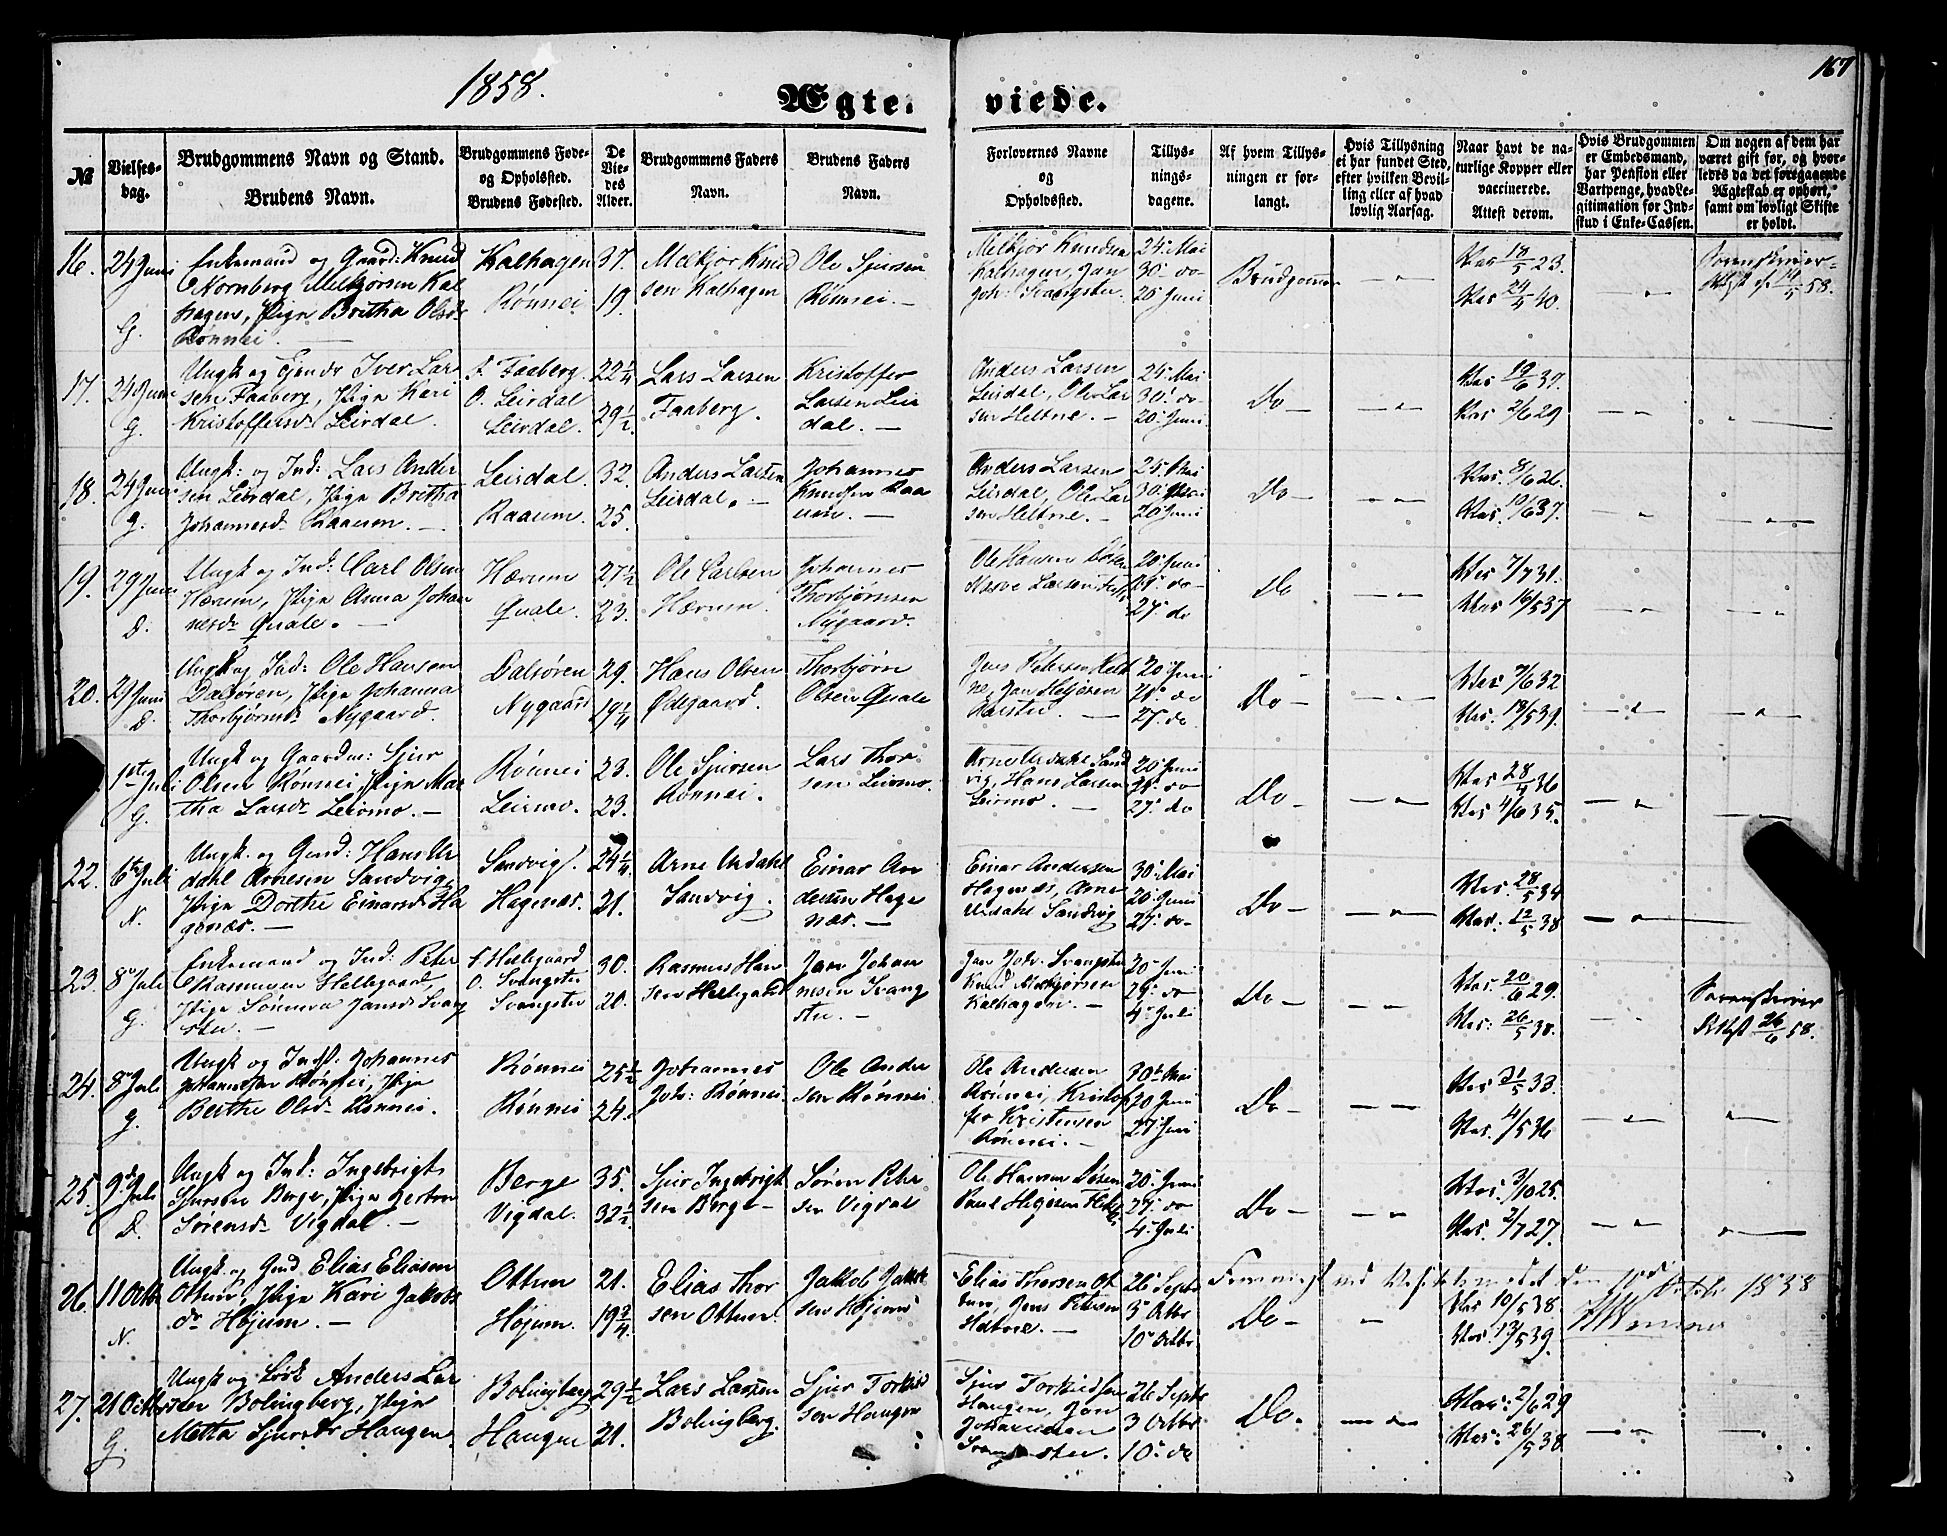 1858.
167
Ægte- viede.
№
Vielses-
dag.
Brudgommens Navn og Stand.
Brudens Navn.
Brudgommens Føde-
og Opholdssted.
Brudens Fødested.
De
Vie-
des
Alder.
Brudgommens Faders
Navn.
Brudens Faders
Navn.
Forlovernes Navne
og
Opholdssted.
Tillys-
nings-
dagene.
Af hvem Tillys-
ningen er for-
langt.
Hvis Tillysning
ei har fundet Sted,
efter hvilken Bevil-
ling eller af hvad
lovlig Aarsag.
Naar havt de na-
turlige Kopper eller
vaccinerede.
Attest derom.
Hvis Brudgommen
er Embedsmand,
har Pension eller
Vartpenge, hvad Le-
gitimation for Ind-
skud i Enke-Cassen.
Om nogen af dem har
været gift før, og hvor-
ledes da det foregaaende
Ægteskab er ophørt,
samt om lovligt Skifte
er holdt.
16.
24 Juni
G.
Enkemand og Gaardm: Knud
Nornberg Melkjorsen Kal
hagen, Pige Britha Olsdr
Rønnei.
Kalhagen
Rønnei
37.
19.
Melkjor Knud
sen Kalhagen
Ole Sjursen
Rønnei.
Melkjor Knudsen
Kalhagen, Jan
Joh: Svangstu.
24. Mai
30. do
20 Juni
Brudgommen
Vac 18/5 23.
Vac 24/4 40.
Sorenskriver-
Attest af 14/5 58.
17.
24 Juni
G.
Ungk og Ejendr Iver Lar
sen Faaberg, Pige Kari
Kristoffersdr Leirdal.
F. Faaberg.
O. Leirdal
Leirdal.
22 1/4
29 1/2
Lars Larsen
Faaberg.
Kristoffer
Larsen Leir
dal.
Anders Larsen
Leirdal, Ole Lar
sen Heltne.
24. Mai
30. do
20. Juni
Do
Vac 19/6 37.
Vac 2/6 29
18.
24 Juni
G.
Ungk: og Ind: Lars Ander
sen Leirdal, Pige Britha
Johannesdr Raaum.
Leirdal.
Raaum.
32.
25.
Anders Larsen
Leirdal.
Johannes
Knudsen Raa
um.
Anders Larsen
Leirdal, Ole Lar
sen Heltne.
25. Mai
30. Mai
20 Juni
Do
Vac. 8/6 26.
Vac. 10/6 37.
19.
29 Juni
D.
Ungk og Ind: Carl Olsen
Hærum, Pige Anna Johan
nesdr Quale.
Hærum
Quale.
27 1/2
23.
Ole Carlsen
Hærum.
Johannes
Thorbjørnsen
Nygaard.
Ole Hansen
Larsen
20. Juni
24. do
27. do
Do
Vac 7/7 31.
Vac 16/5 37
20.
29 Juni
D.
Ungk og Ind: Ole Hansen
Dalsøren, Pige Johanna
Thorbjørnsdr Nygaard.
Dalsøren
Nygaard
29.
19 1/4
Hans Olsen
Ødegaard.
Thorbjørn
Olsen Quale
Jens Petersen Helt
ne, Jan
20 Juni
24. do
27. do
Do
Vac 7/6 32
Vac. 18/5 39.
1ste Juli
G.
Ungk og Gaardm: Sjur
Olsen Rønnei, Pige Mar
tha Larsdr Leirmo.
Rønnei
Leirmo.
23.
23.
Ole Sjursen
Rønnei.
Lars Thor
sen Leirmo.
Arne Urdahl Sand
vig, Hans Larsen
Leirmo.
20 Juni
24. do
27. do
Do
Vac 28/4 36
Vac 4/6 35.
22.
6te Juli
N.
Ungk. og Gmd: Hans Ur
dahl Arnesen Sandvig,
Pige Dorthe Einarsdr Ha
genæs.
Sandvig.
Hagenæs.
24 1/4
21.
Arne Urdahl
Sandvig.
Einar An
dersen Hage
næs.
Einar Andersen
Hagenæs, Arne
Urdahl Sandvig
30. Mai
20. Juni
27. do
Do
Vac. 28/5 34
Vac. 12/5 38
23.
8de Juli
G.
Enkemand og Ind: Peter
Rasmussen Hellegaard,
Pige Sønneva Jansdr Svang
stu.
F. Hellegaard
O. Svangstu
Svangstu
30.
20.
Rasmus Han
sen Hellegaard
Jan Johan
nesen Svang
stu.
Jan Joh. Svangstu
Knud Melkjorsen
Kalhagen.
20. Juni
29. do
4. Juli
Do
Vac. 20/6 29.
Vac: 26/5 38.
Sorenskriver
Attest 26/6 58.
24.
8de Juli
G.
Ungk og Indst. Johannes
Johannesen Rønnei, Pige
Berthe Olsdr Rønnei.
Rønnei
Rønnei
25 1/2
24.
Johannes
Joh: Rønnei
Ole Ander
sen Rønnei
Ole Andersen
Rønnei, Kristof
fer Kristensen
Rønnei.
30te Mai
20 Juni
27 Juni
Do
Vac 31/5 33.
Vac. 4/5 36
25.
9de Juli
D.
Ungk og Ind: Ingebrigt
Sjursen Berge, Pige Gertrud
Sørensdr Vigdal.
Berge
Vigdal.
35.
32 1/2
Sjur Ingebrigt
sen Berge
Søren Peter
sen Vigdal
Ole Hansen
Paul
20. Juni
27. do
4. Juli
Do
Vac. 3/10 25.
Vac 2/7 27.
26.
11 Octbr
N.
Ungk. og Gmd. Elias Eliasen
Ottum, Pige Kari Jakobs
dr Højum.
Ottum
Højum.
21.
19 3/4
Elias Thor
sen Ottum
Jakob Jakob
sen Højum
Elias Thorsen Ot
tum, Jens Petersen
Heltne.
26 Septbr
3 Octbr
10. Octbr
Do
Vac 10/5 38.
Vac. 13/5 39.
1858
27.
21 Octbr
G.
Ungk og Anders Lar
sen Bolingberg, Pige
Metta Sjursdr Haugen.
Bolingberg
Haugen
29 1/2
21.
Lars Larsen
Bolingberg.
Sjur Torkild
sen Haugen
Sjur Torkildsen
Haugen, Jan
Johannesen
Svangstu.
26 Septbr
3 Octbr
10. do
Do.
Vac: 2/6 29
Vac: 26/5 38.